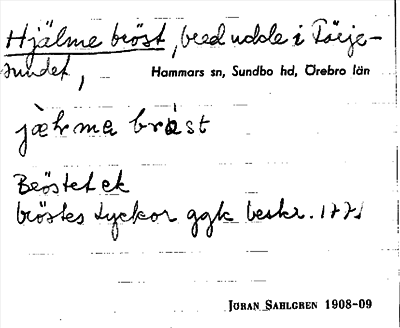 Hjälme bröst, bred udde i Törje-
sundet,
Hammars sn, Sundbo hd, Örebro län
jælma brøst
Bröstet ek
bröstes tyckor ggk beskr. 1771
JÖRAN SAHLGREN 1908-09